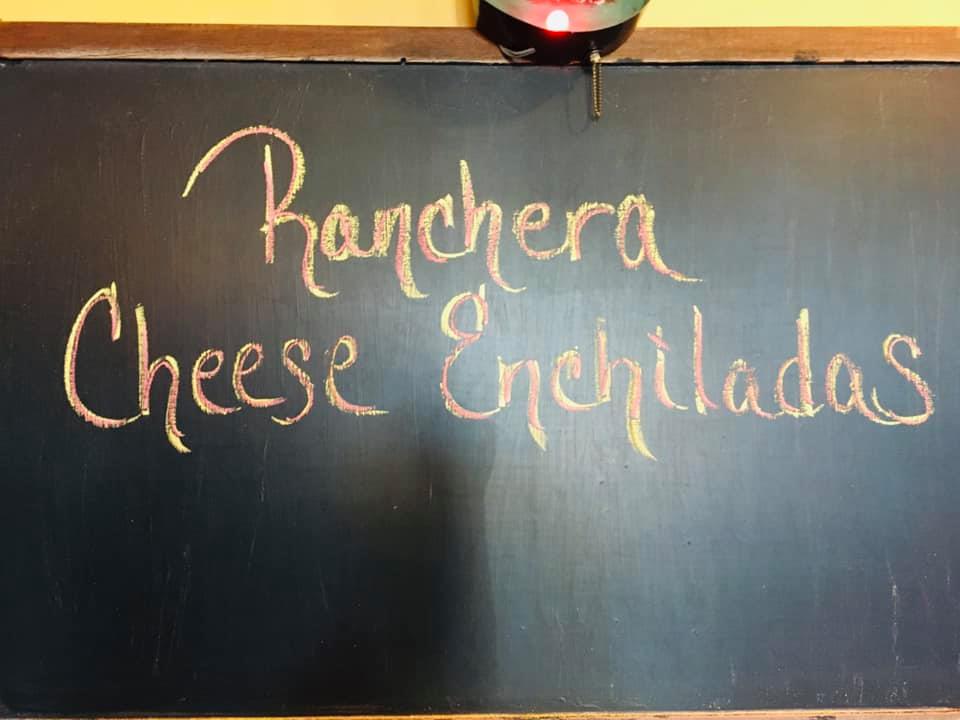 Ranchera
Cheese Enchiladas